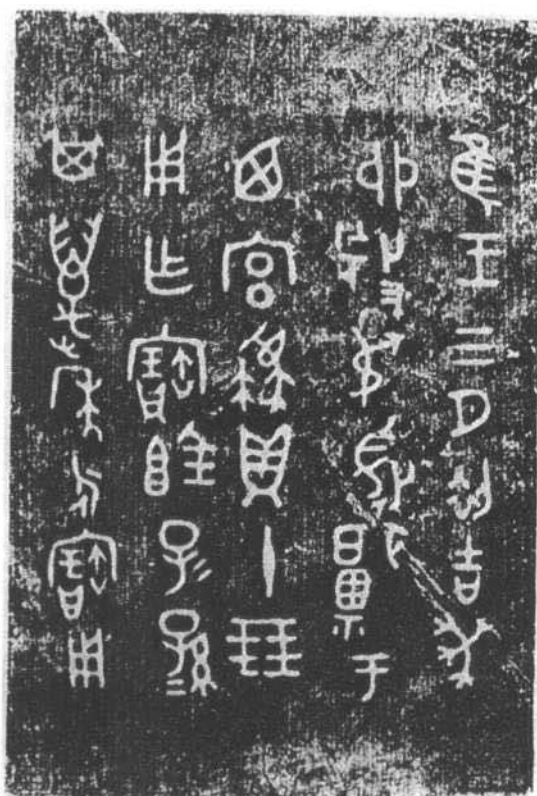 隹王三月初吉癸
卯叔于
西宮貝十朋
用乍寶子=孫=
其萬年永寶用